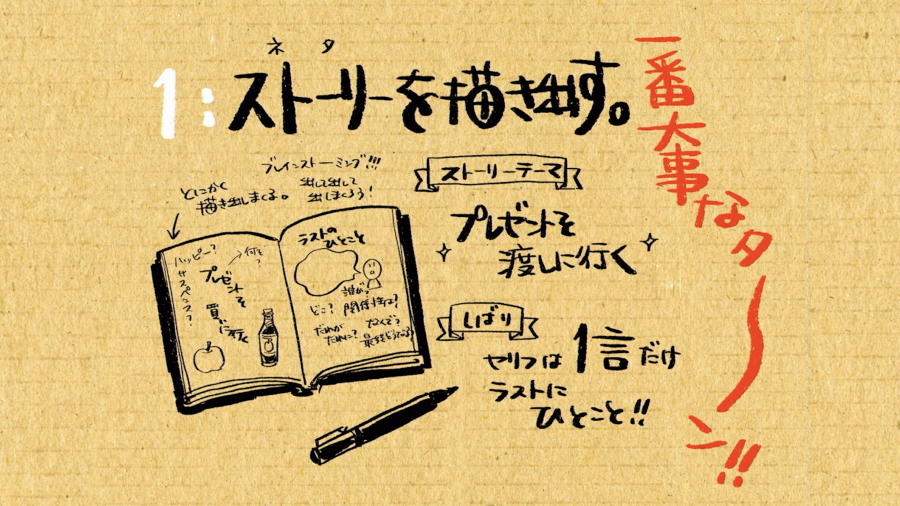 ネタ
1:ストーリーを描き出す。
一番大事なターン!!
ブレインストーミング!!!
出して出して
出しまくろう!
とにかく
描き出しまくる。
ストーリーテーマ
プレゼントを
渡しに行く
ハッピー?
サスペンス?
何を?
プレゼントを
買いに行く
ラストの
ひとこと
誰が?
どこ? 関係性は?
だれが
だれに?
なんで?
最後どうなる?
しばり
セリフは1言だけ
ラストに
ひとこと!!